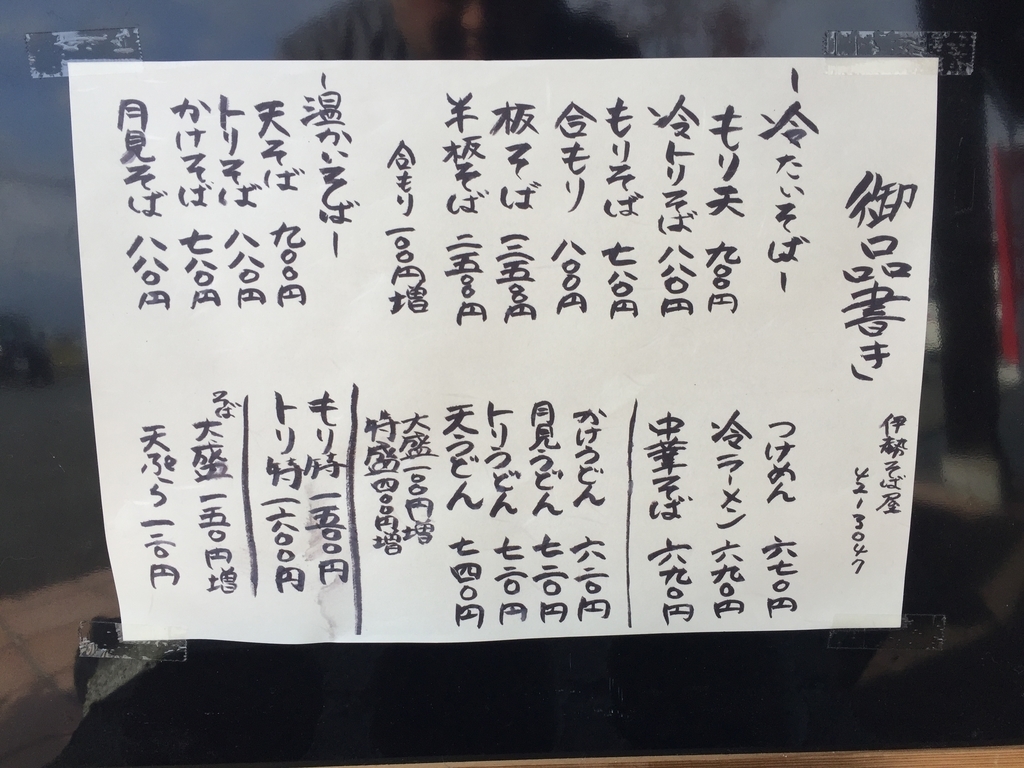 御品書き
伊勢そば屋
42-3047
ー冷たいそばー
もり天 九〇〇円
冷トリそば 八八〇円
もりそば 七八〇円
合もり 八〇〇円
板そば
半板そば
合もり 一〇〇円増
ー温かいそばー
天そば 九〇〇円
トリそば 八八〇円
かけそば 七八〇円
月見そば 八八〇円
つけめん 六七〇円
冷ラーメン 六九〇円
中華そば 六九〇円
かけうどん 六二〇円
月見うどん 七二〇円
トリうどん 七二〇円
天うどん 七四〇円
大盛一〇〇円増
特盛四〇〇円増
もり特 一五〇〇円
トリ特 一六〇〇円
そば大盛 一五〇円増
天ぷら 一二〇円